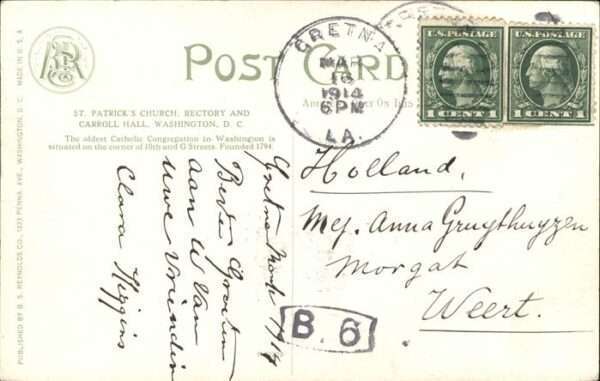 POST CARD
MADE IN U.S.A.
PUBLISHED BY B. S. REYNOLDS CO., 1231 PENNA. AVE., WASHINGTON, D. C.
ST. PATRICK'S CHURCH, RECTORY AND
CARROLL HALL, WASHINGTON, D. C.
The oldest Catholic Congregation in Washington is
situated on the corner of 10th and G Streets. Founded 1794.
GRETNA
MAR
16
1914
6 PM
LA.
U.S. POSTAGE
1 CENT 1
U.S. POSTAGE
1 CENT 1
Holland,
Mej. Anna Gruythuyzen
Morgat
Weert.
B. 6
Gretna
Beste Groeten
aan U van
uwe Vriendin
Clara Higgins